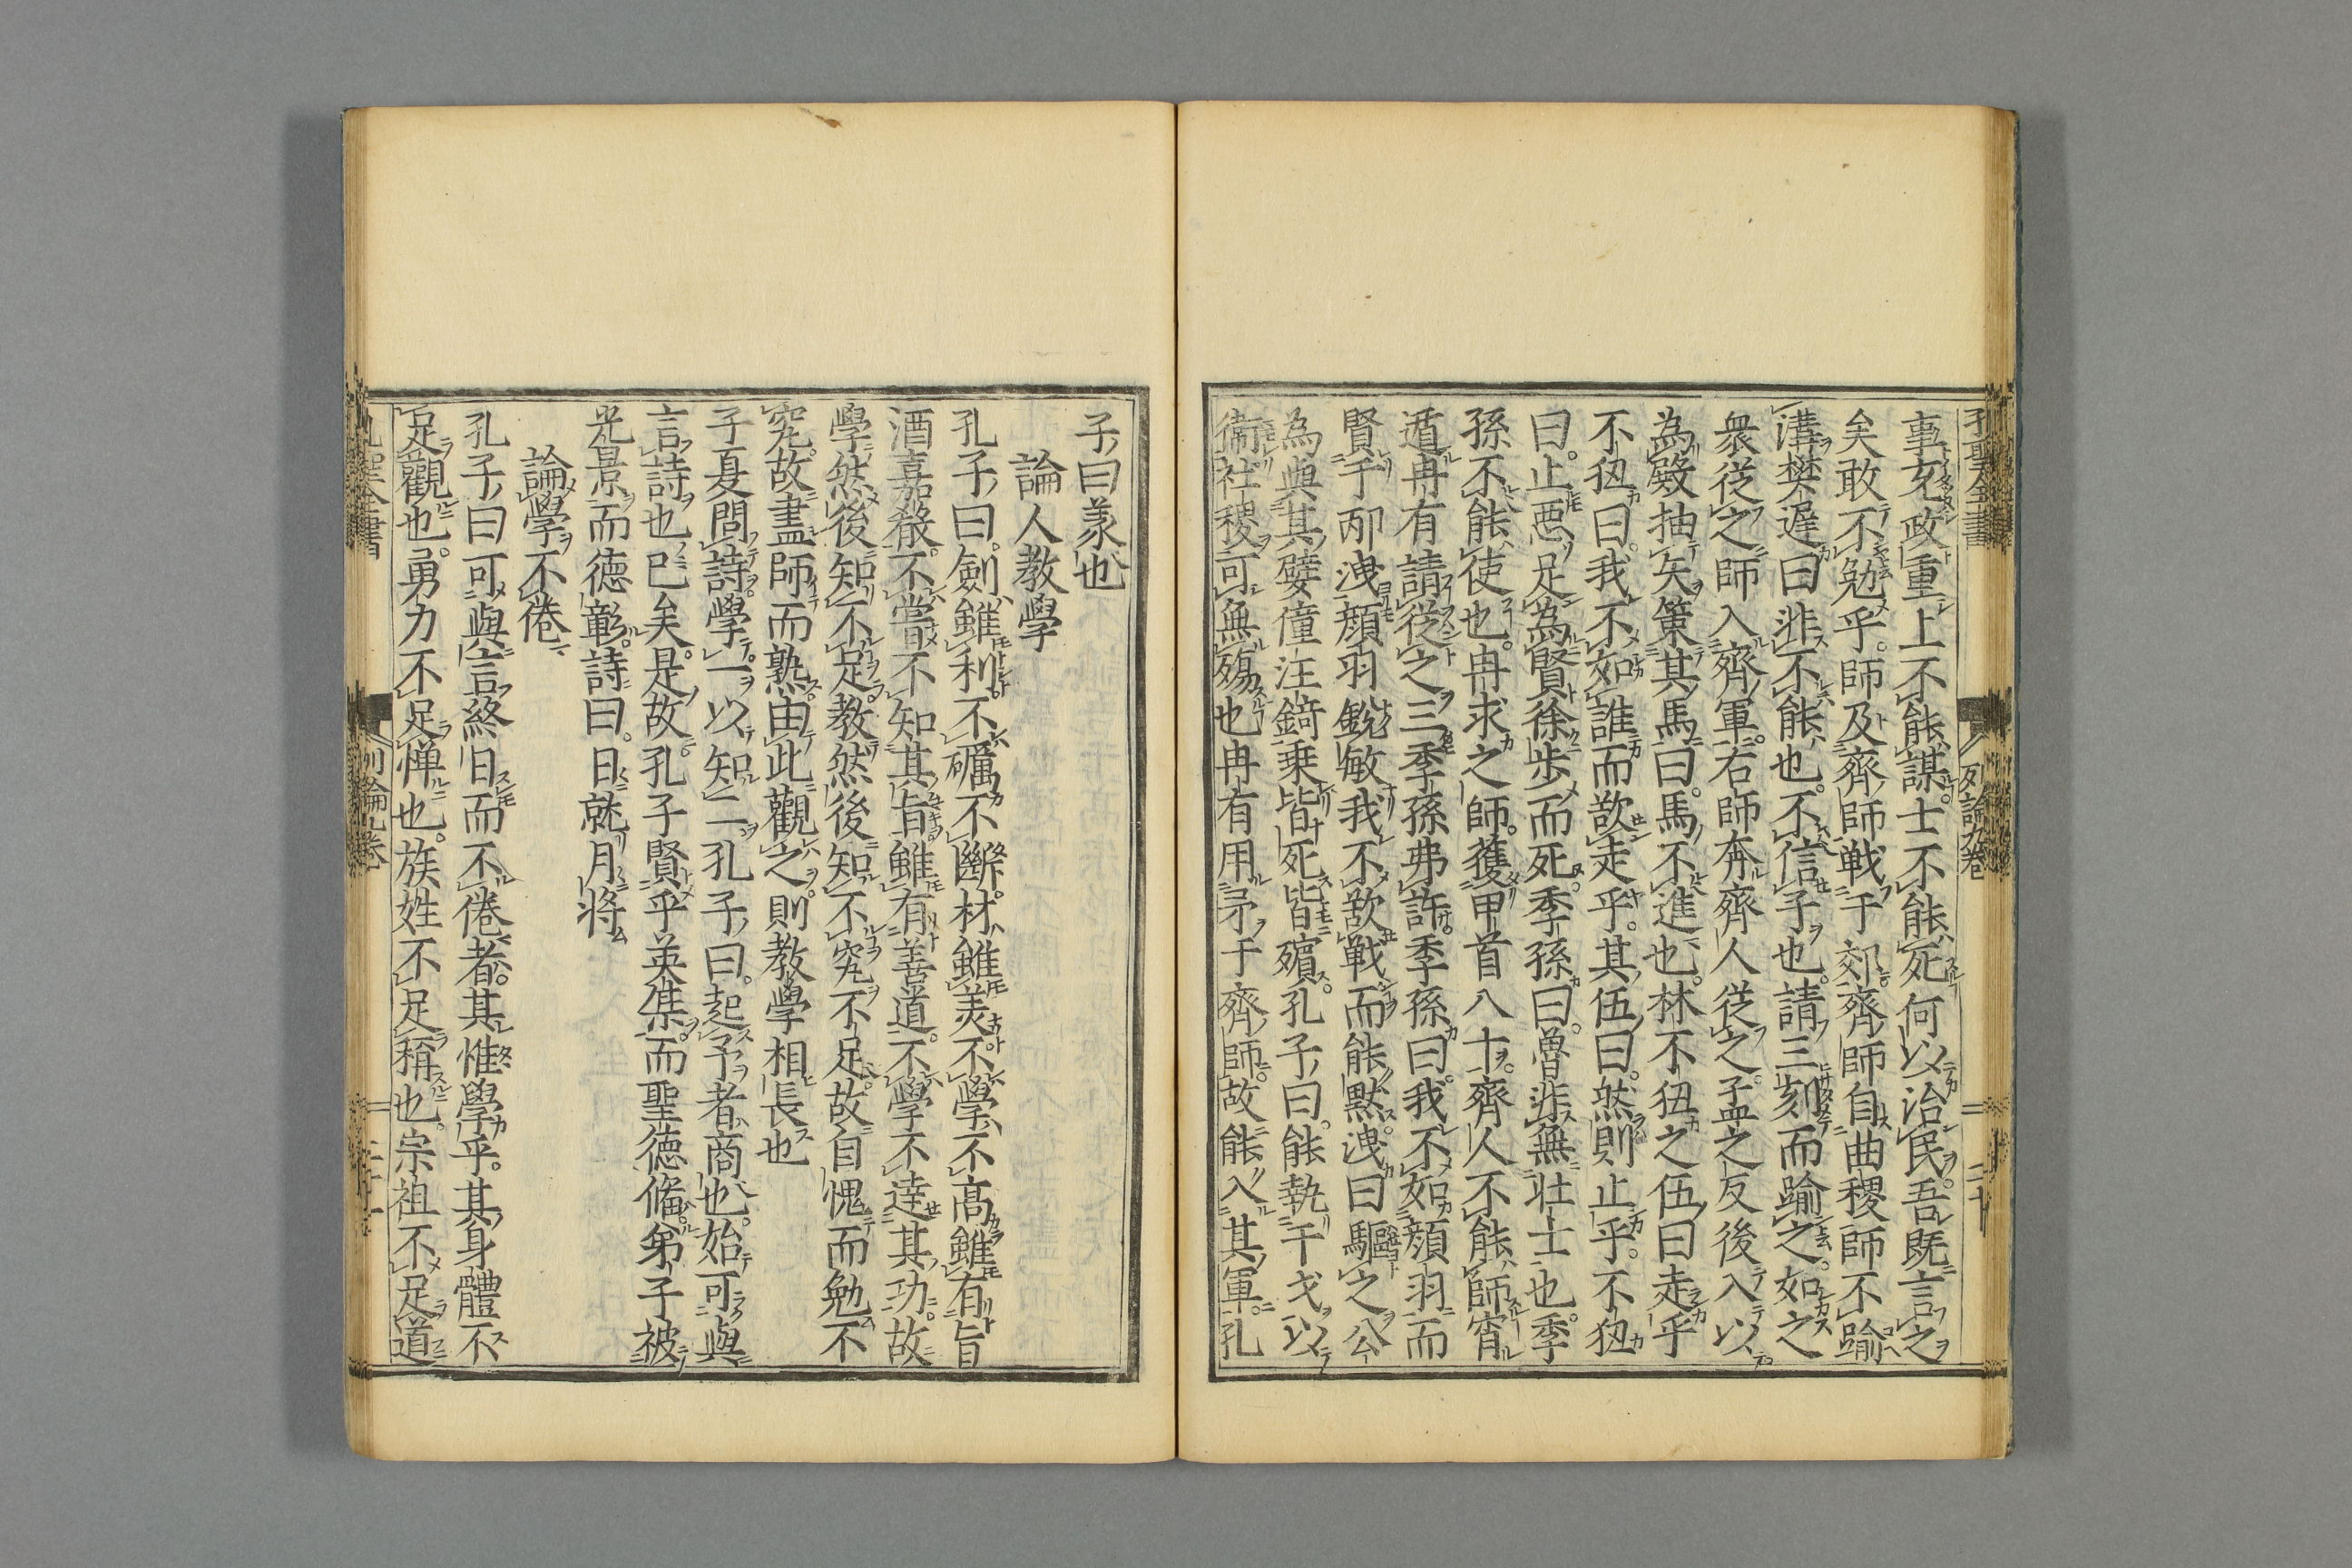 孔聖全書　列論九卷　二十
事充政重上不能謀士不能死何以治民吾既言之
矣敢不勉乎師及齊師戦于郊齊師自曲稷師不踰
溝樊遅曰非不能也不信子也請三刻而踰之如之
衆從之師入齊軍右師奔齊人從之孟之反後入以
為殿抽矢策其馬曰馬不進也林不狃之伍曰走乎
不狃曰我不如誰而欲走乎其伍曰然則止乎不狃
曰止惡足為賢徐步而死季孫曰魯非無壮士也季
孫不能使也冉求之師獲甲首八十齊人不能師宵
遁冉有請從之三季孫弗許季孫曰我不如顔羽而
賢于邴洩顔羽銳敏我不欲戦而能默洩曰驅之公
為與其嬖僮汪錡乗皆死皆殯孔子曰能執干戈以
衛社稷可無殤也冉有用矛于齊師故能入其軍孔
子曰義也
論人教學
孔子曰劍雖利不礪不斷材雖美不學不高雖有旨
酒嘉殽不嘗不知其旨雖有善道不學不達其功故
學然後知不足教然後知不究不足故自愧而勉不
究故盡師而熟由此觀之則教學相長也
子夏問詩學一以知二孔子曰起予者商也始可與
言詩也已矣是故孔子賢乎英傑而聖德俻弟子被
光景而德彰詩曰日就月將
論學不倦
孔子曰可與言終日而不倦者其惟學乎其身體不
足觀也勇力不足憚也族姓不足稱也宗祖不足道
列論九卷